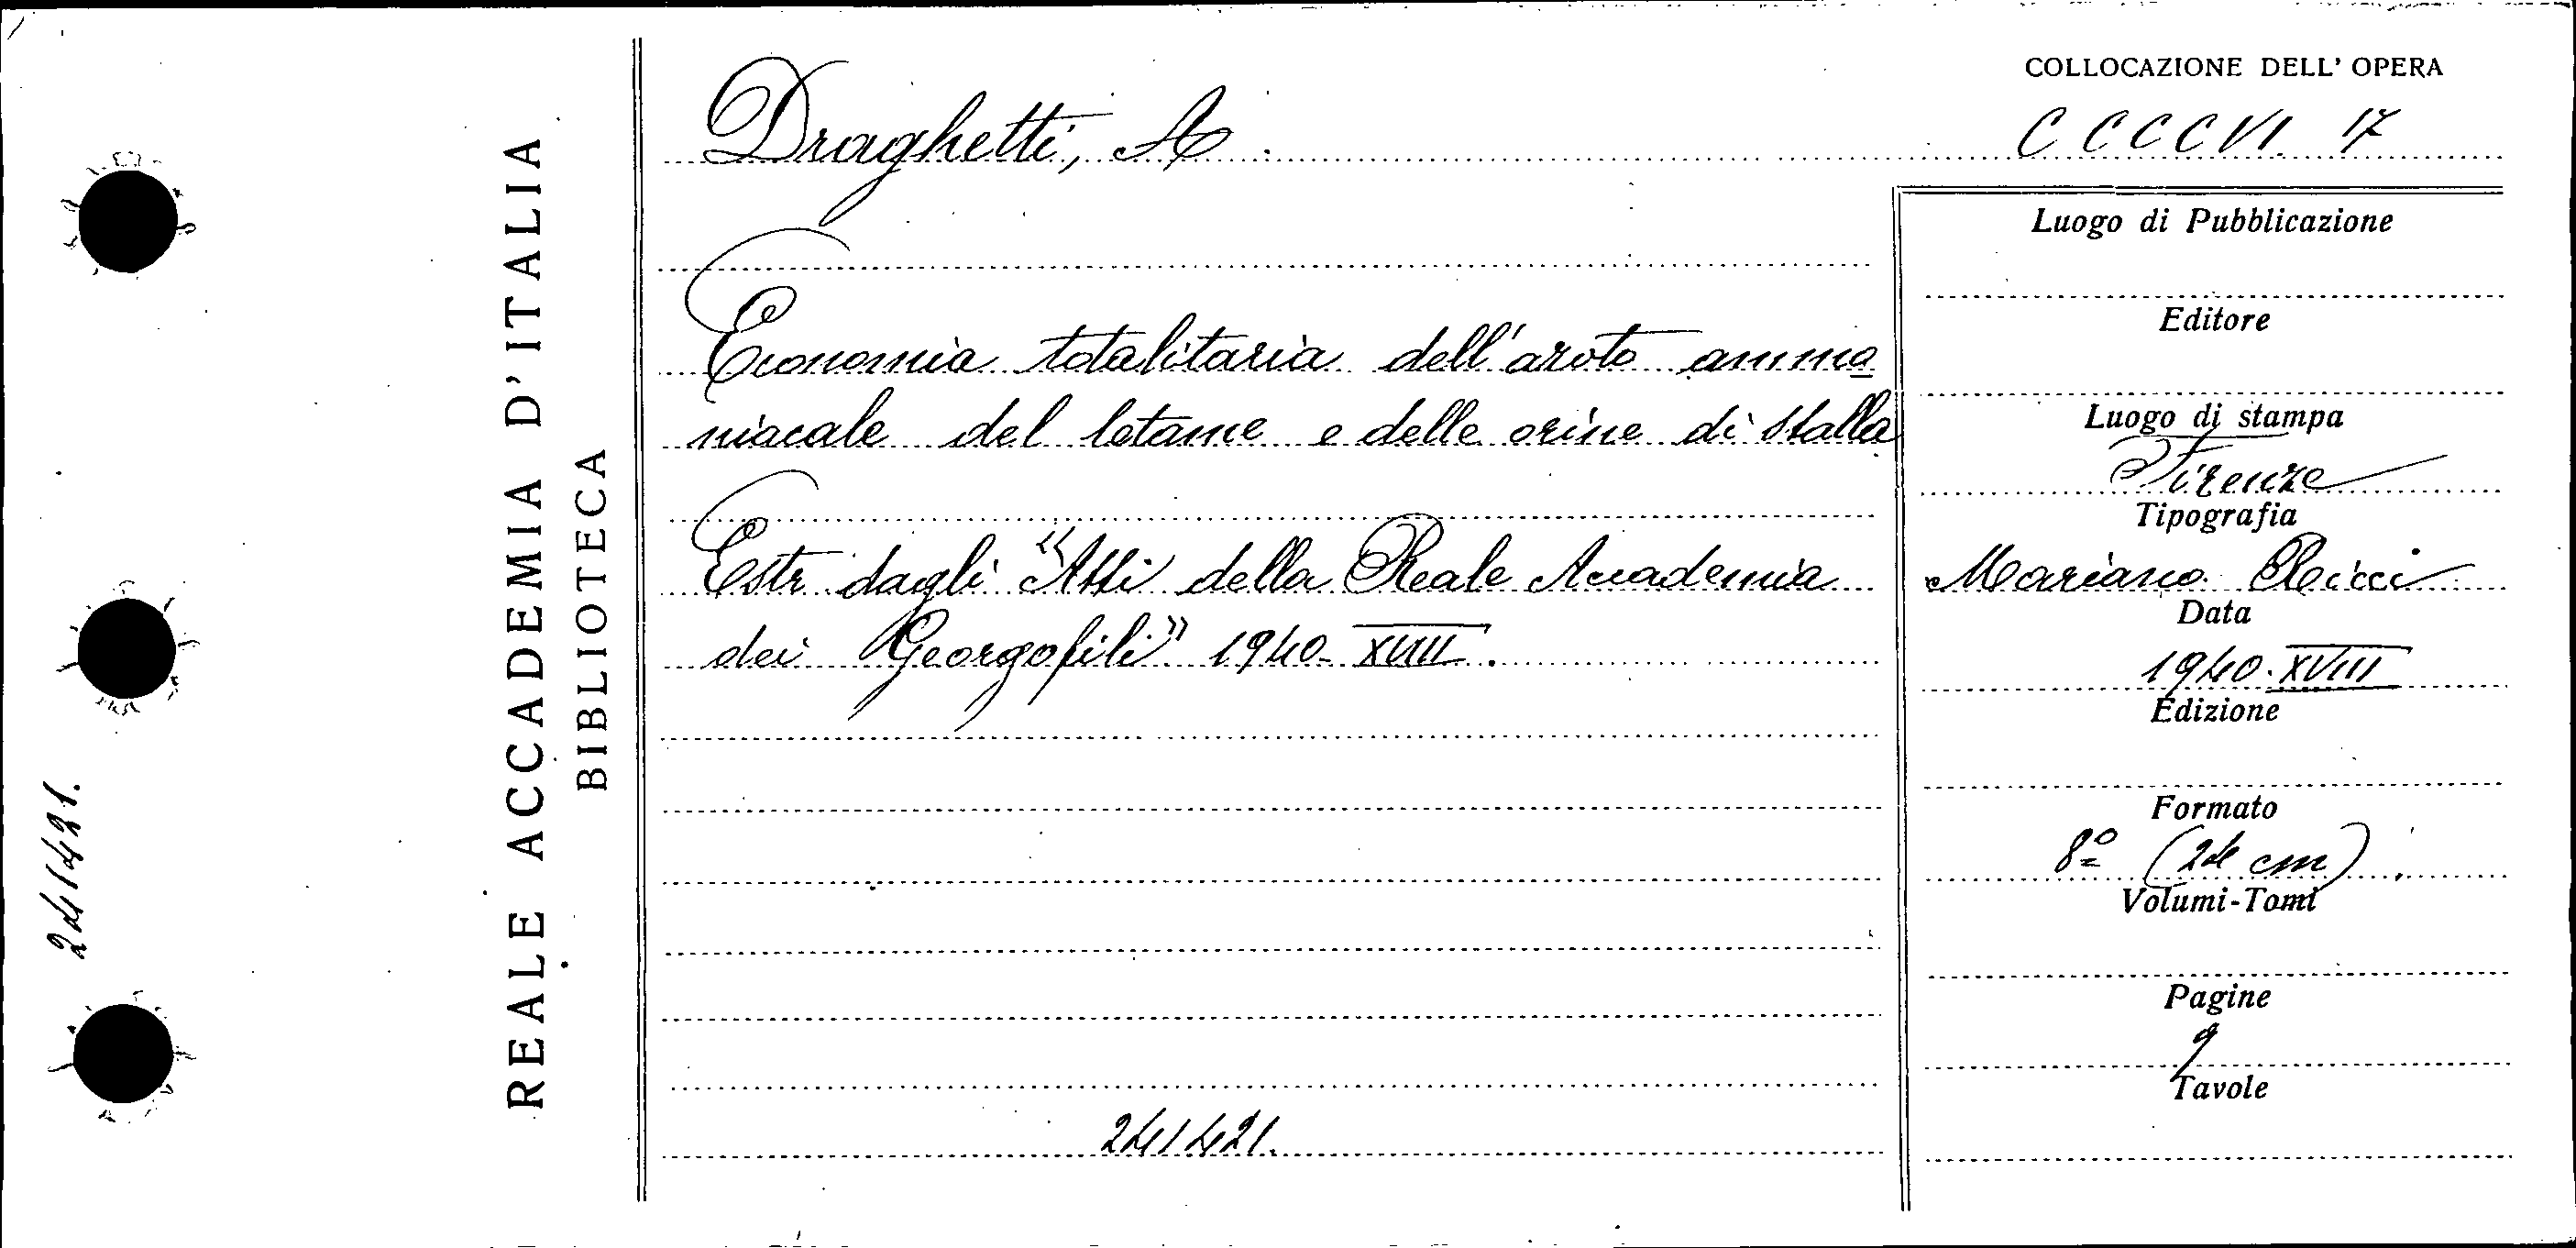 241421.
REALE ACCADEMIA D'ITALIA
BIBLIOTECA
Draghetti, A.
Economia totalitaria dell'azoto ammo
niacale del letame e delle orine di stalla
Estr. dagli "Atti della Reale Accademia
dei Georgofili" 1940-XVIII.
241421.
COLLOCAZIONE DELL' OPERA
CCCCVI. 17
Luogo di Pubblicazione
Editore
Luogo di stampa
Firenze
Tipografia
Mariano Ricci
Data
1940-XVIII
Edizione
Formato
8º (24 cm).
Volumi-Tomi
Pagine
9
Tavole